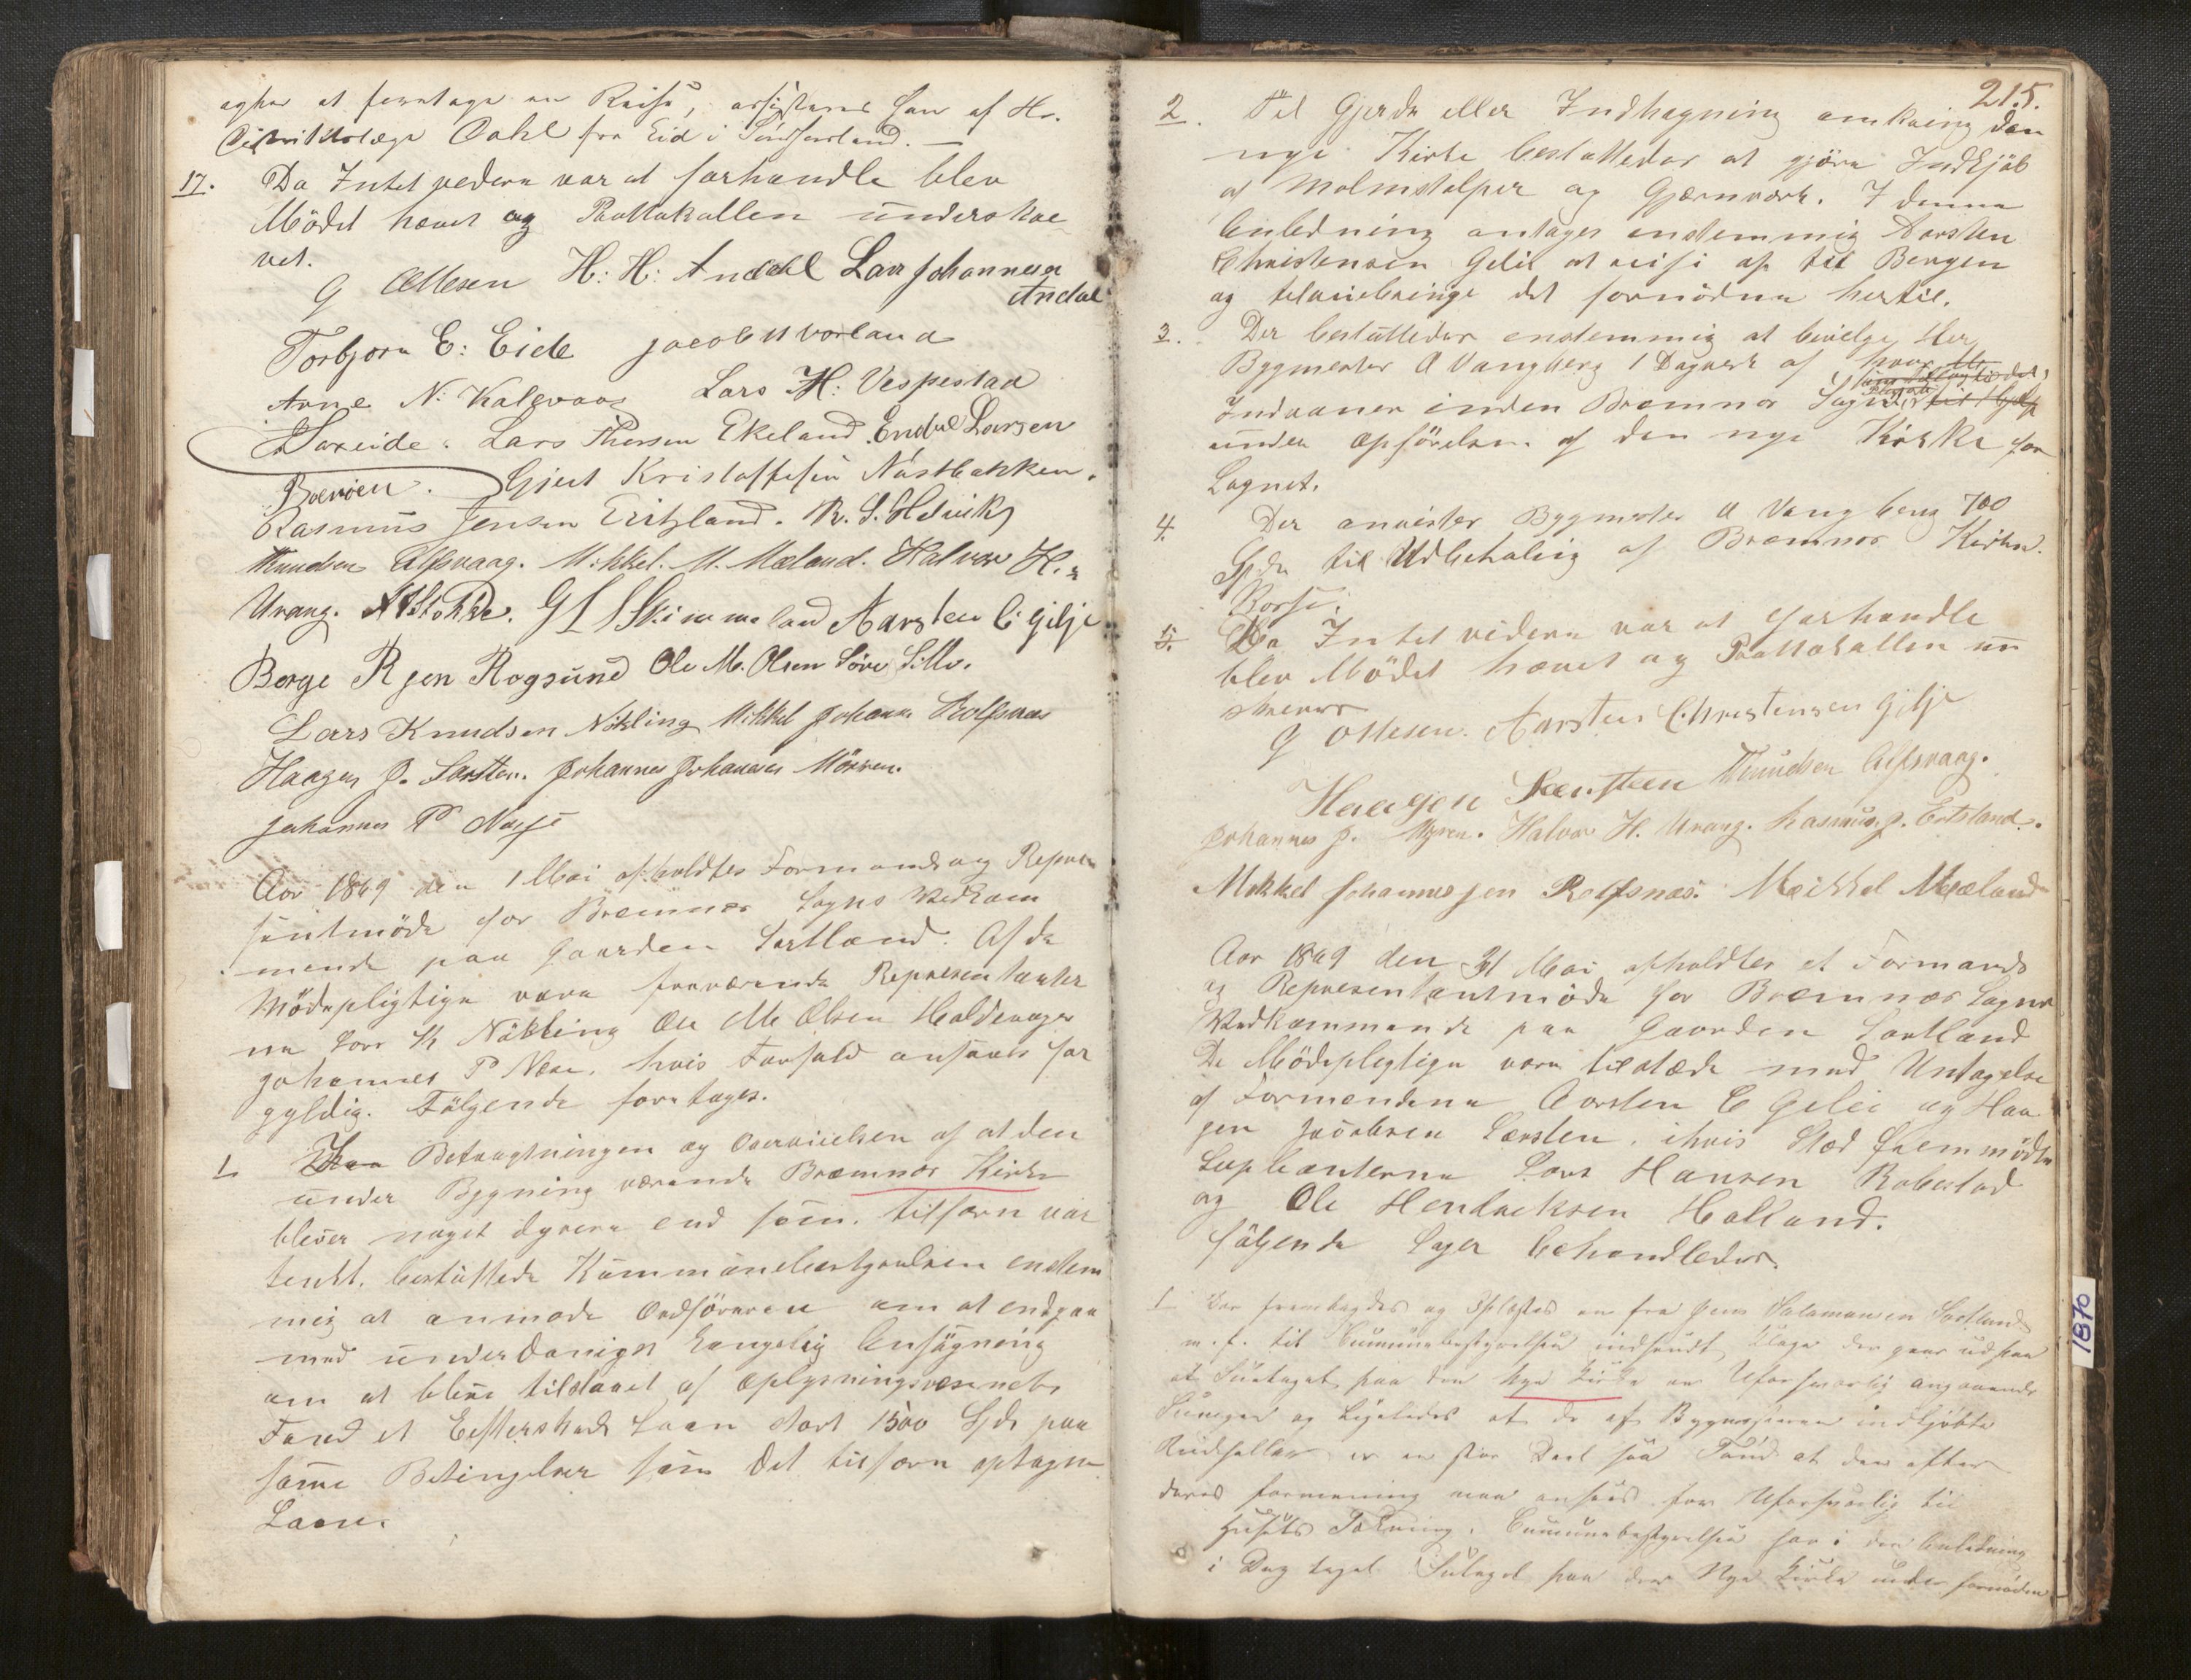 at foretage en Reise, assisteres han af Hr.
Distriktslæge Dahl fra Eid i Söndhordland.
17. Da Intet videre var at forhandle blev
Mödet hævet og Prottokollen underskre-
vet.
G Ottesen H: H: Andahl Lars Johannesen
Andal
Torbjorn E: Eide Jacob H Vorland
Arne N: Kalevaag Lars H: Vespestad
Saxeide. Lars Thorsen Ekeland. Endre Larsen
Gjert Kristoffersen Nástbakken.
Rasmus Jensen Eritzland. R. S. Helvik
Knudsen Alfsvaag. Mikkel. M. Mæland. Halvor H.
Urang. G L S Skimmeland Aarsten C: Gilje
Børge Rjen Rogsund Ole M. Olsen
Lars Knudsen Nökling Mikkel Johannes Rolfsnæs
Haagen J. Særsten. Johannes Johannes
Johannes P
Aar 1869 den 1 Mai afholdtes Formands og Repræ
sentmöde for Bremnes Sogns Vedkom
mende paa Gaarden Sortland. Af de
Mödepligtige vare fraværende Repræsentanter
ne Lars K Nökling Ole M Olsen
Johannes P Næse. hvis Forfald ansaaes for
gyldig. Fölgende foretoges.
1 I Betragtningen og Overveielsen af at den
under Bygning værende Bremnes Kirke
bliver noget dyrere end som tilforn var
tenkt. besluttede Kommunebestyrelsen enstem
mig at anmode Ordföreren om at indgaa
med underdanigst kongelig Ansögning
om at blive tilstaaet af Oplysningsvæsenets
Fond et Efterskuds Laan stort 1500 Spd. paa
samme Betingelser som det tilforn optagne
Laan.
215.
2. Til Gjerde eller Indhegning omkring den
nye Kirke besluttedes at gjöre Indkjöb
af Malmstolper og Gjærnværk. I denne
Anledning antages enstemmig Aarsten
Christensen Gilje at reise op til Bergen
og tilveiebringe det fornödne hertil.
3. Der besluttedes enstemmig at bevilge Her
Bygmester A Vangberg 1 Dagverk af hver
Indvaaner inden Bremnes Sogn
under opförelsen af den nye Kirke for
Sognet.
4. Der anvistes Bygmester A Vangberg 700
Spd. til Udbetaling af Bremnes Kirke
5. Da Intet videre var at forhandle
blev Mödet hævet og Prottokollen un
skrevet
G Ottesen. Aarsten Christensen Gilje
Haagen Særsteen Knudsen Alfsvaag.
Johannes J. Myren. Halvor H. Urang. Rasmus J. Eritsland.
Mikkel Johannesjen Rolfsnæs. Mikkel Mæland
Aar 1869 den 31 Mai afholdtes et Formands
og Repræsentantmöde for Bremnes Sogns
Vedkommende paa Gaarden Sortland
De Mödepligtige vare tilstæde med Untagelse
af Formendene Aarsten C Gilje og Haa
gen Jacobsen Særsten. i hvis Sted fremmödte
Suplianterne Lars Hansen Robestad
og Ole Hendriksen Holland.
fölgende Sager behandledes.
1 Der fremlagdes og Oplæstes en fra Jens Salamonsen Sortland
m. f. til Communebestyrelsen indsendt Klage der gaar ud paa
at Suletaget paa den nye Kirke er Uforsvarlig angaaende
og ligeledes at de af Bygmesteren indkjöbte
er en stor Deel saa Tönd at den efter
deres formening maa ansees for Uforsvarlig til
Husets Tækning. Communebestyrelsen har i den Anledning
i Dag taget paa den Nye Kirke under
1870